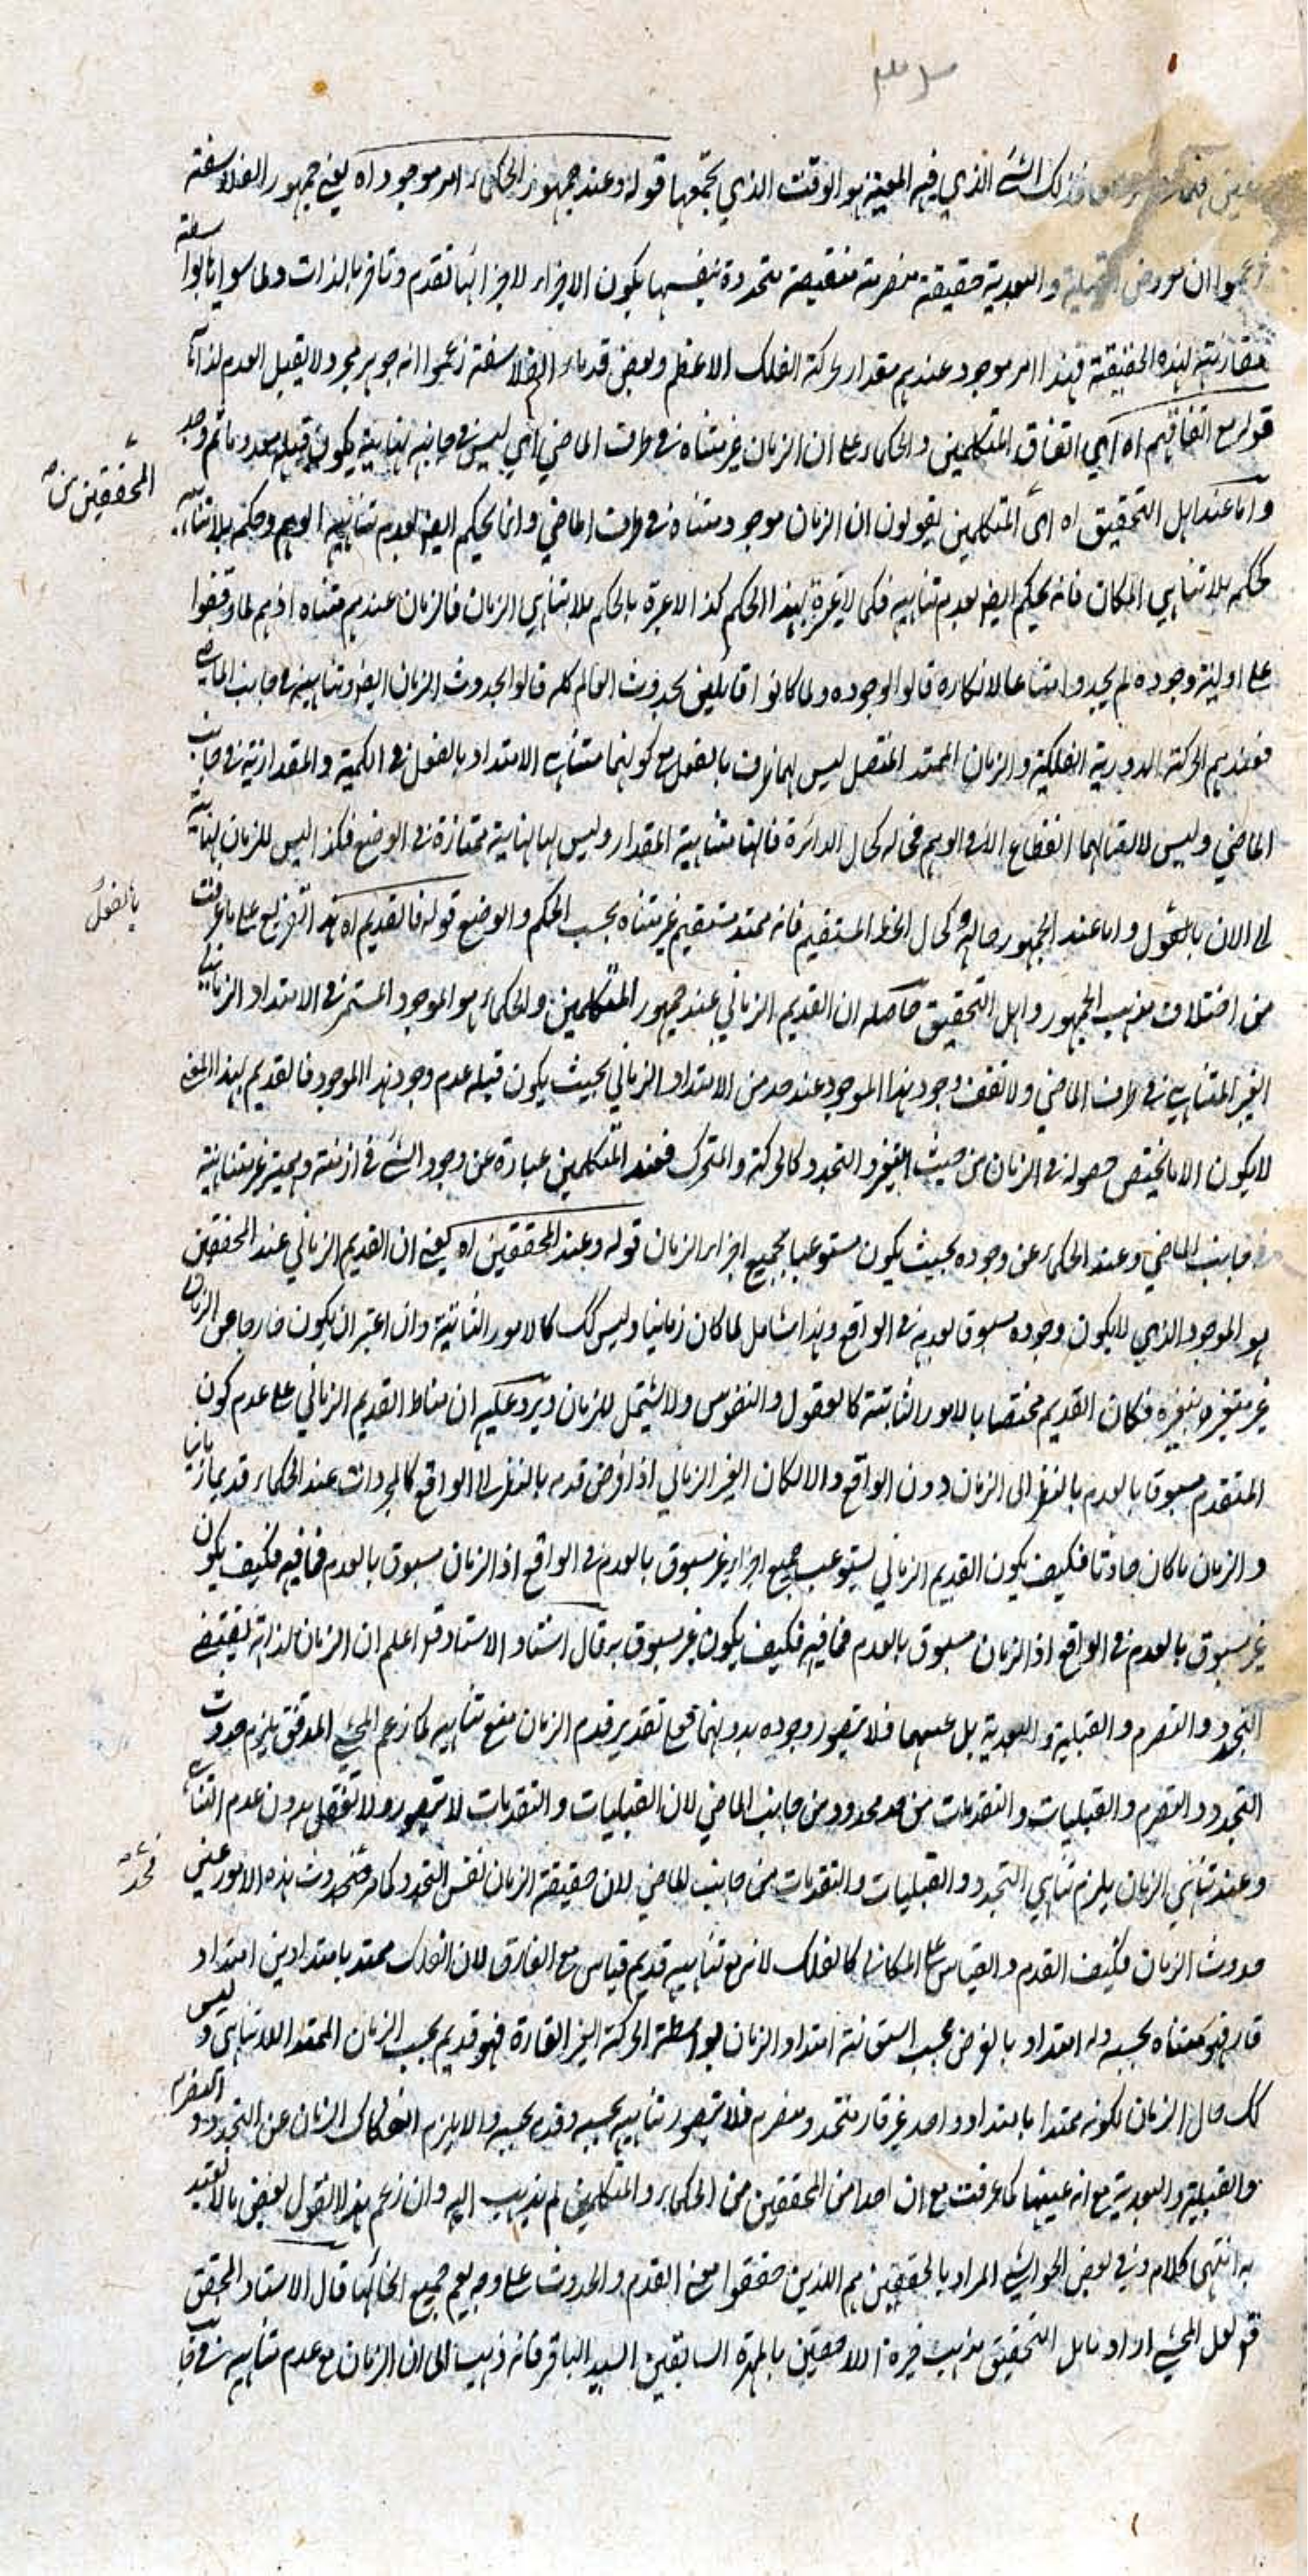 فذلك الشئ الذي فيه المعية هو الوقت الذي يجمعها قوله وعند جمهور الحكماء امر موجود اه يعني جمهور الفلاسفة
زعموا ان معروض القبلية والبعدية حقيقة متصرمة متقضية متجددة بنفسها يكون الاجزاء لاجزائها تقدم وتاخر بالذات ولما سواها بواسطة
مقارنته لهذه الحقيقة فهذا امر موجود عندهم مقدار لحركة الفلك الاعظم وبعض قدماء الفلاسفة زعموا انه جوهر مجرد لا يقبل العدم لذاته
قوله مع اتفاقهم اه اي اتفاق المتكلمين والحكماء على ان الزمان غير متناه في طرف الماضي اي ليس في جانبه نهاية يكون قبله معدوما ثم وجد
واما عند اهل التحقيق اه اي المتكلمين يقولون ان الزمان موجود متناه في طرف الماضي وانما يحكم العقل بعدم تناهيه الوهم وحكمه بلا تناهيه
المحققين من
كحكمه بلا تناهي المكان فانه يحكم ايضا بعدم تناهيه فكما لا عبرة بهذا الحكم كذا لا عبرة بالحكم بلا تناهي الزمان فالزمان عندهم متناه اذ هم لما وقفوا
على اولية وجوده لم يجدوا امتناعا لانكاره قالوا لوجوده ولما كانوا قائلين بحدوث العالم كله قالوا بحدوث الزمان ايضا وتناهيه في جانب الماضي
فعندهم الحركة الدورية الفلكية والزمان الممتد المتصل ليس لهما طرف بالفعل مع كونهما متناهي الامتداد بالفعل في الكمية والمقدارية في جانب
الماضي وليس لاتصالهما انقطاع الا في الوهم فحاله كحال الدائرة فانها متناهية المقدار وليس لها نهاية ممتازة في الوضع فكذا ليس للزمان نهاية
الى الان بالفعل واما عند الجمهور حاله كحال الخط المستقيم فانه ممتد مستقيم غير متناه بحسب الحكم والوضع قوله فالقديم اه هذا التفريع على ما عرفت
بالفعل
من اختلاف مذهب الجمهور واهل التحقيق حاصله ان القديم الزماني عند جمهور المتكلمين والحكماء هو الموجود المستمر في الامتداد الزماني
الغير المتناهي في طرف الماضي ولا تقف وجود هذا الموجود عند حد من الامتداد الزماني بحيث يكون قبله عدم وجود هذا الموجود فالقديم بهذا المعنى
لا يكون الا ما يختص حصوله في الزمان من حيث التغير والتجدد كالحركة والمتحرك فعند المتكلمين عبارة عن وجود الشئ في ازمنة وهمية غير متناهية
جانب الماضي وعند الحكماء عن وجوده بحيث يكون مستوعبا لجميع اجزاء الزمان قوله وعند المحققين اه يعني ان القديم الزماني عند المحققين
هو الموجود الذي لا يكون وجوده مسبوق بعدمه في الواقع وهذا شامل لما كان زمانيا وليس كك كالامور الثابتة وان اعتبر ان يكون خارجا عن الزمان
غير متغير بتغيره فكان القديم مختصا بالامور الثابتة كالعقول والنفوس ولا يشتمل للزمان ويرد عليه ان مناط القديم الزماني على عدم كون
المتقدم مسبوقا بالعدم بالنظر الى الزمان دون الواقع والا لكان الغير الزماني اذا فرض قدمه بالنظر الى الواقع كالمجردات عند الحكماء قديما زمانيا
والزمان ما كان حادثا فكيف يكون القديم الزماني يستوعب جميع اجزاءه غير مسبوق بالعدم في الواقع اذ الزمان مسبوق بالعدم فما فيه فكيف يكون
غير مسبوق بالعدم في الواقع اذ الزمان مسبوق بالعدم فما فيه فكيف يكون غير مسبوق به قال استاد الاستاد قد اعلم ان الزمان لذاته يقتضي
التجدد والتصرم والقبلية والبعدية بل عينهما فلا يتصور وجوده بدونهما فمع تقدير قدم الزمان مع تناهيه كما زعم المحشي المدقق يلزم حدوث
التجدد والتصرم والقبليات والتقدمات من حد محدود من جانب الماضي لان القبليات والتقدمات لا تتصور ولا تعقل بدون عدم التناهي
وعند تناهي الزمان يلزم تناهي التجدد والقبليات والتقدمات من جانب الماضي لان حقيقة الزمان نفس التجدد كما مر فحدوث هذه الامور عين
حدوث الزمان فكيف القدم والقياس على المكان كالفلك لانه مع تناهيه قديم قياس مع الفارق لان الفلك ممتد بامتدادين امتداد
قار فهو متناه بحسبه وله امتداد بالعرض بحسب امتداد الزمان بواسطة الحركة الغير القارة فهو قديم بحسب الزمان الممتد اللا تناهي وليس
كك حال الزمان لكونه ممتدا بامتداد واحد غير قار متجدد ومتصرم فلا يتصور تناهيه بحسبه وقدمه بحسبه والا يلزم انفكاك الزمان عن التجدد والتصرم
والقبلية والبعدية مع انه عينها كما عرفت مع ان احدا من المحققين من الحكماء والمتكلمين لم يذهب اليه وان زعم هذا القول بعض لا يعتد
به انتهى كلامه وفي بعض الحواشي المراد بالمحققين هم الذين حققوا معنى القدم والحدوث على وجه يعم جميع انحائها قال الاستاد المحقق
فولعل المحشي اراد باهل التحقيق مذهب خيرة اللاحقين بالمهرة السابقين السيد الباقر فانه ذهب الى ان الزمان مع عدم تناهيه في جانب